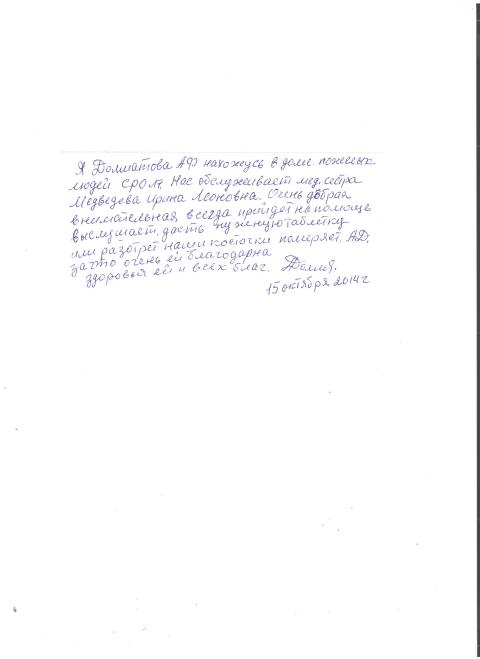 Я Долматова АФ нахожусь в доме пожелых
людей СРОлг Нас обслуживает мед. сетра
Медведева Ирина Леоновна. Очень добрая
внимательная, всегда прийдет на помощь
выслушает, дасть нуженую таблетку
или разотрет наши косточки померяет. АД.
зачто очень ей благодарна
здоровья ей и всех благ. Долм.
15 октября 2014 г